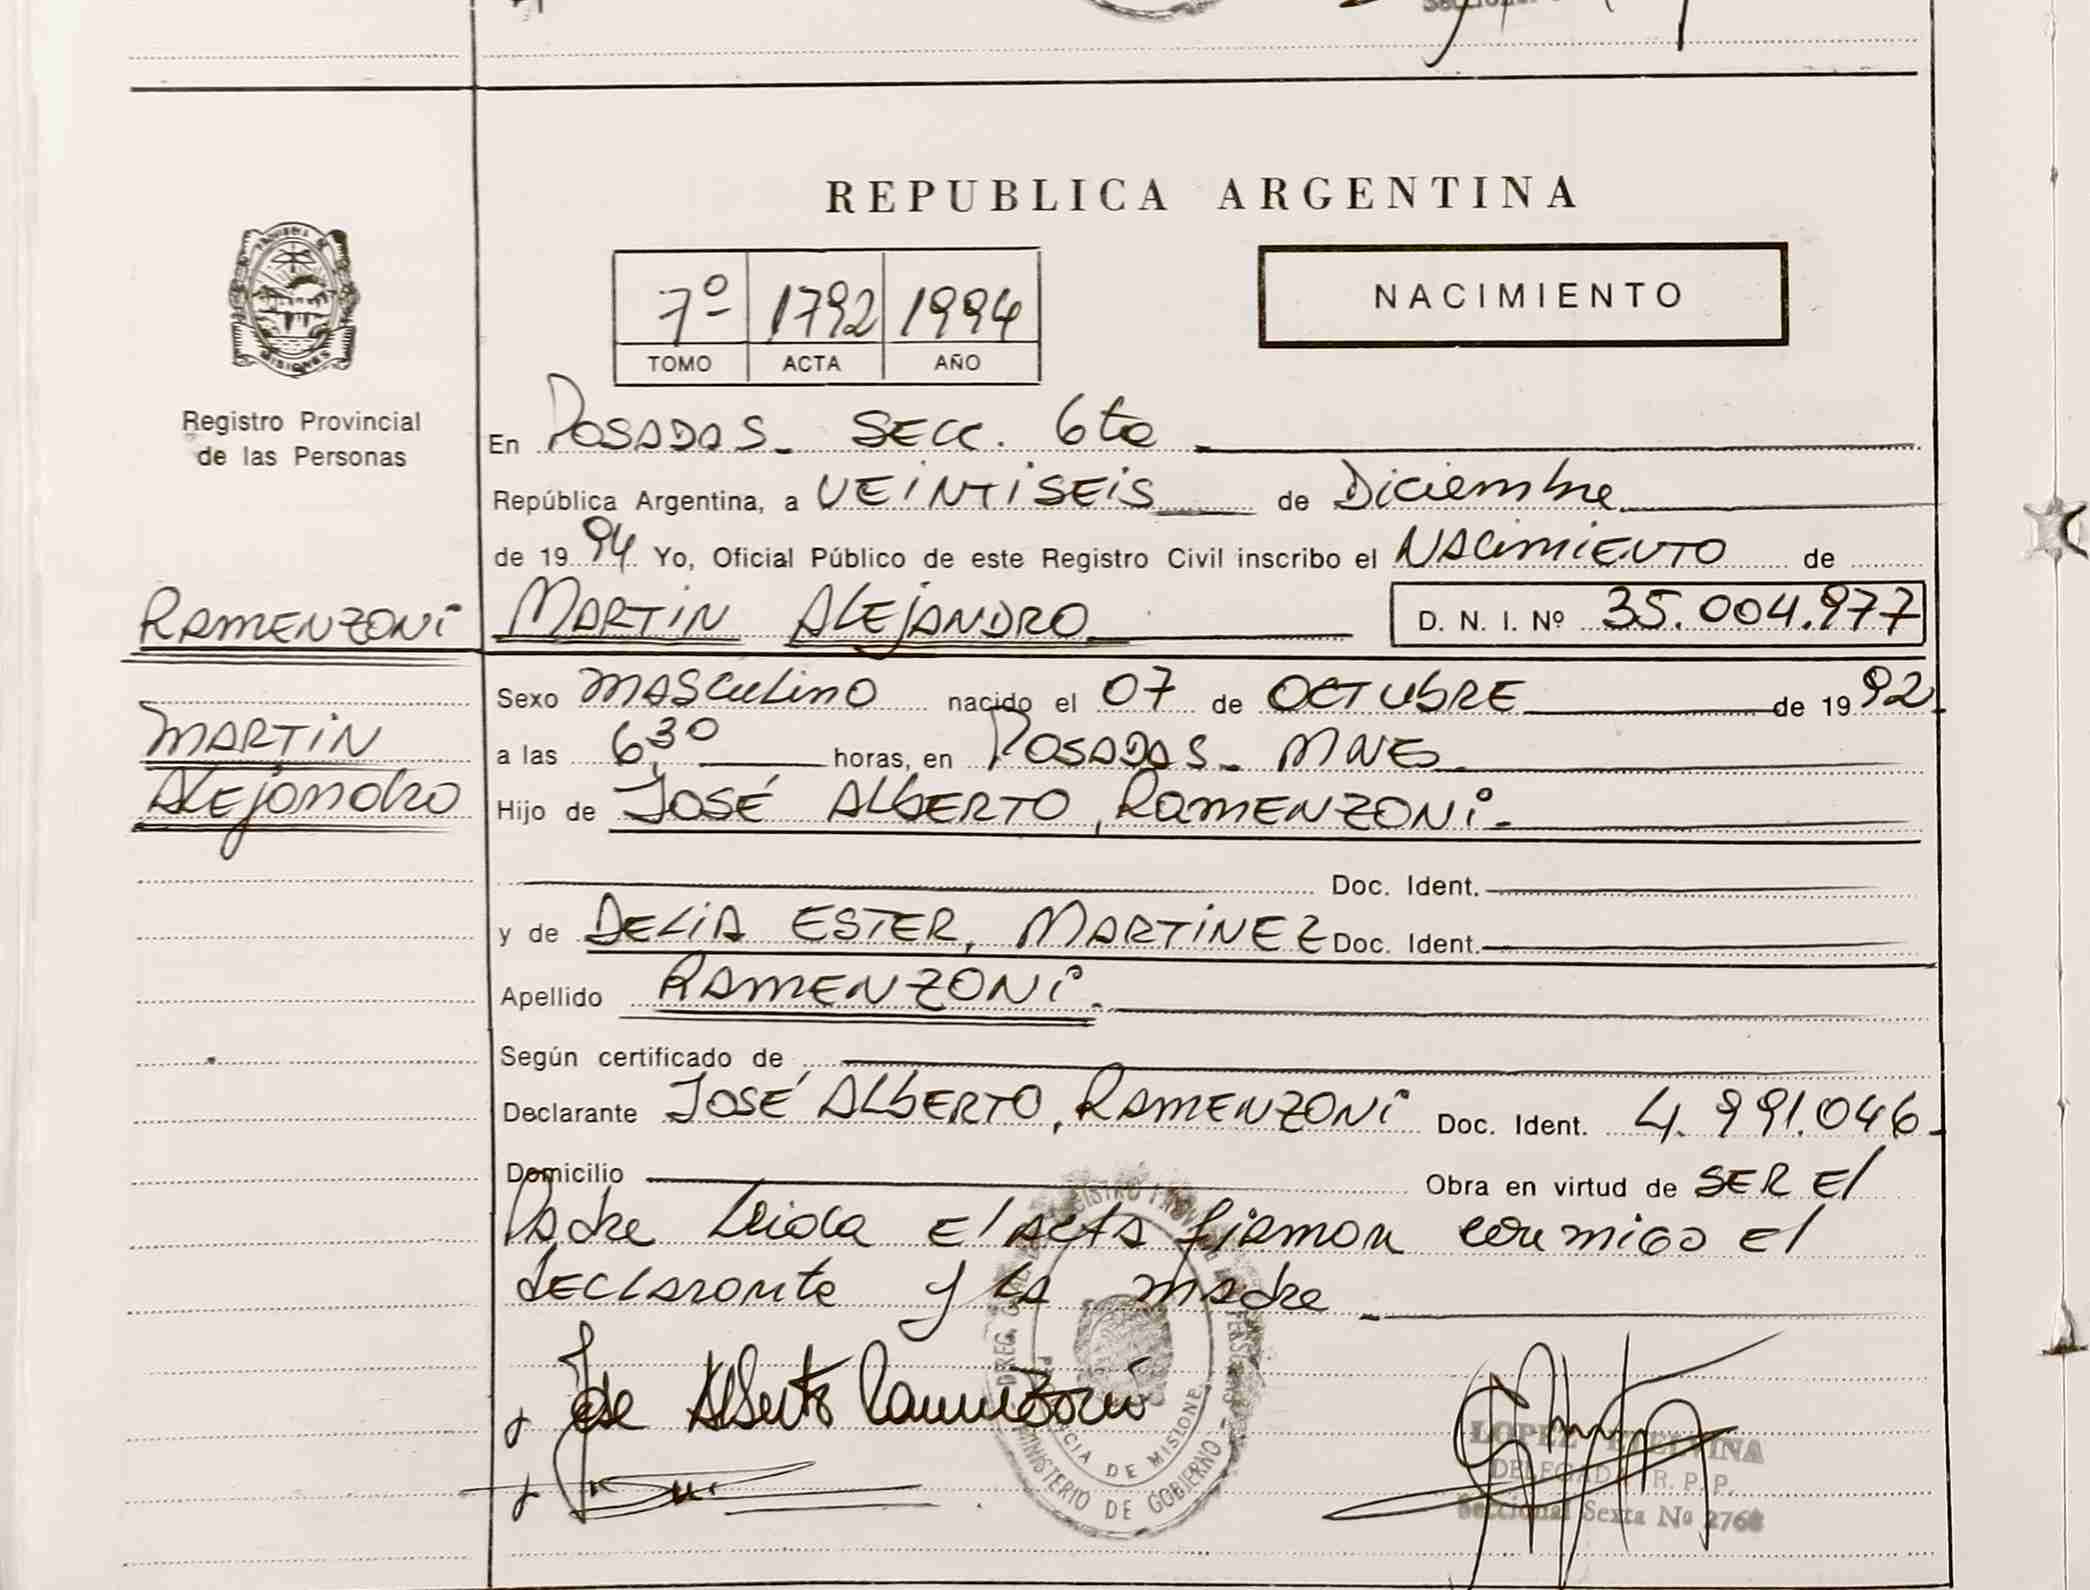 REPUBLICA ARGENTINA
MISIONES
7º 1792 1994
TOMO ACTA AÑO
NACIMIENTO
Registro Provincial
de las Personas
En POSADAS - SECC. 6ta
República Argentina, a VEINTISEIS de Diciembre
de 1994 Yo, Oficial Público de este Registro Civil inscribo el NACIMIENTO de
RAMENZONI
MARTIN
Alejandro
MARTIN ALEJANDRO D. N. I. Nº 35.004.977
Sexo MASCULINO nacido el 07 de OCTUBRE de 1992
a las 6,30 horas, en POSADAS - MNES.
Hijo de JOSÉ ALBERTO, RAMENZONI.
Doc. Ident.
y de DELIA ESTER, MARTINEZ Doc. Ident.
Apellido RAMENZONI.
Según certificado de
Declarante JOSÉ ALBERTO, RAMENZONI Doc. Ident. 4.991.046
Domicilio Obra en virtud de SER El
Padre Leida El ACTA firman conmigo El
declarante y la madre
Jose Alberto Ramenzoni
PROVINCIA DE MISIONES
MINISTERIO DE GOBIERNO
LOPEZ
DELEGADA R. P. P.
Seccional Sexta Nº 2768